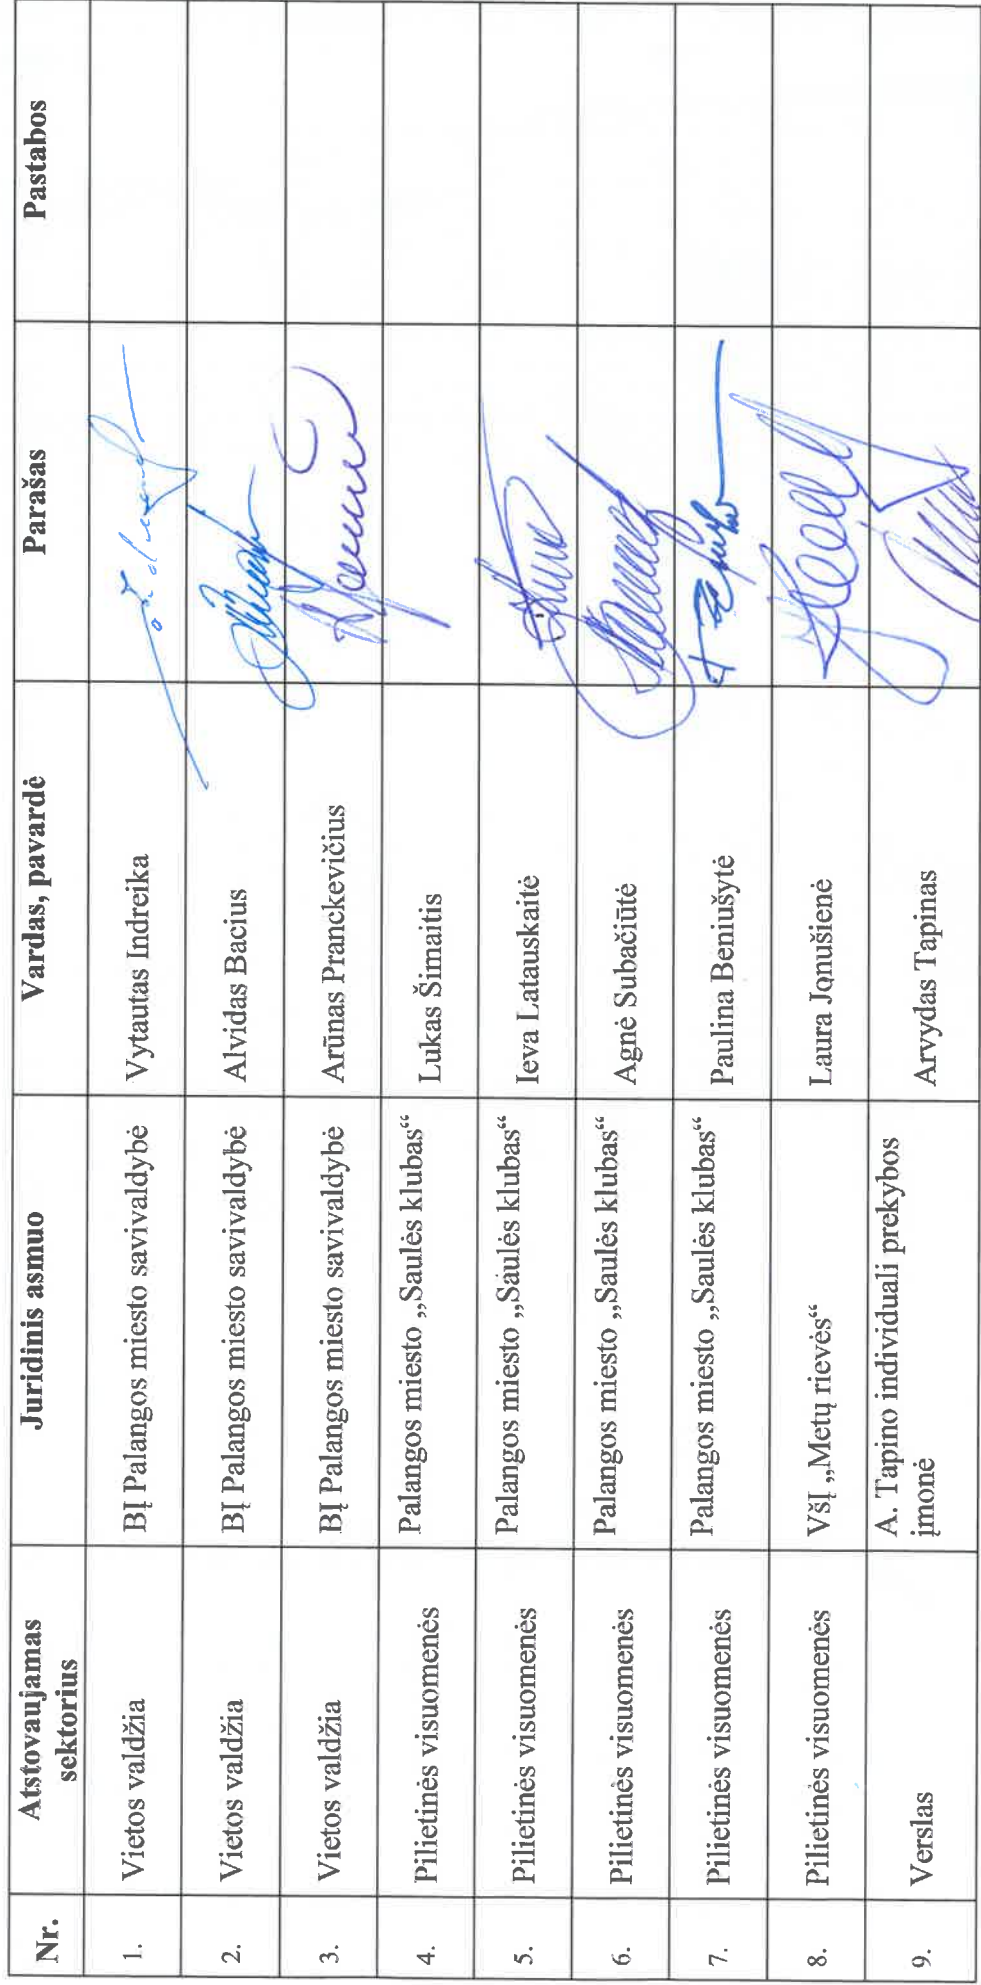 Nr. Atstovaujamas sektorius Juridinis asmuo Vardas, pavardė Parašas Pastabos
1. Vietos valdžia BĮ Palangos miesto savivaldybė Vytautas Indreika
2. Vietos valdžia BĮ Palangos miesto savivaldybė Alvidas Bacius
3. Vietos valdžia BĮ Palangos miesto savivaldybė Arūnas Pranckevičius
4. Pilietinės visuomenės Palangos miesto „Saulės klubas“ Lukas Šimaitis
5. Pilietinės visuomenės Palangos miesto „Saulės klubas“ Ieva Latauskaitė
6. Pilietinės visuomenės Palangos miesto „Saulės klubas“ Agnė Subačiūtė
7. Pilietinės visuomenės Palangos miesto „Saulės klubas“ Paulina Beniušytė
8. Pilietinės visuomenės VšĮ „Metų rievės“ Laura Jonušienė
9. Verslas A. Tapino individuali prekybos įmonė Arvydas Tapinas